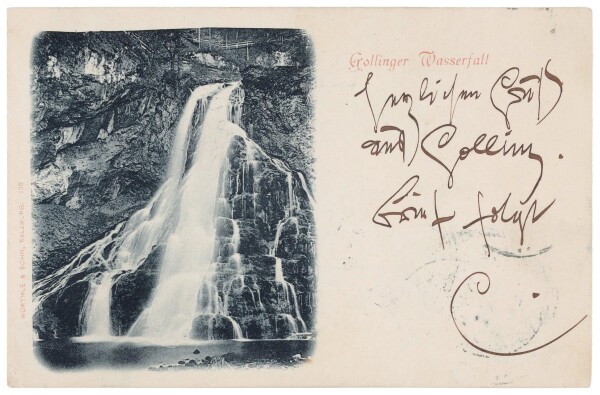 Gollinger Wasserfall
Herzlichen Gruß
aus Golling.
Brief folgt
C.
WÜRTHLE & SOHN, SALZBURG.